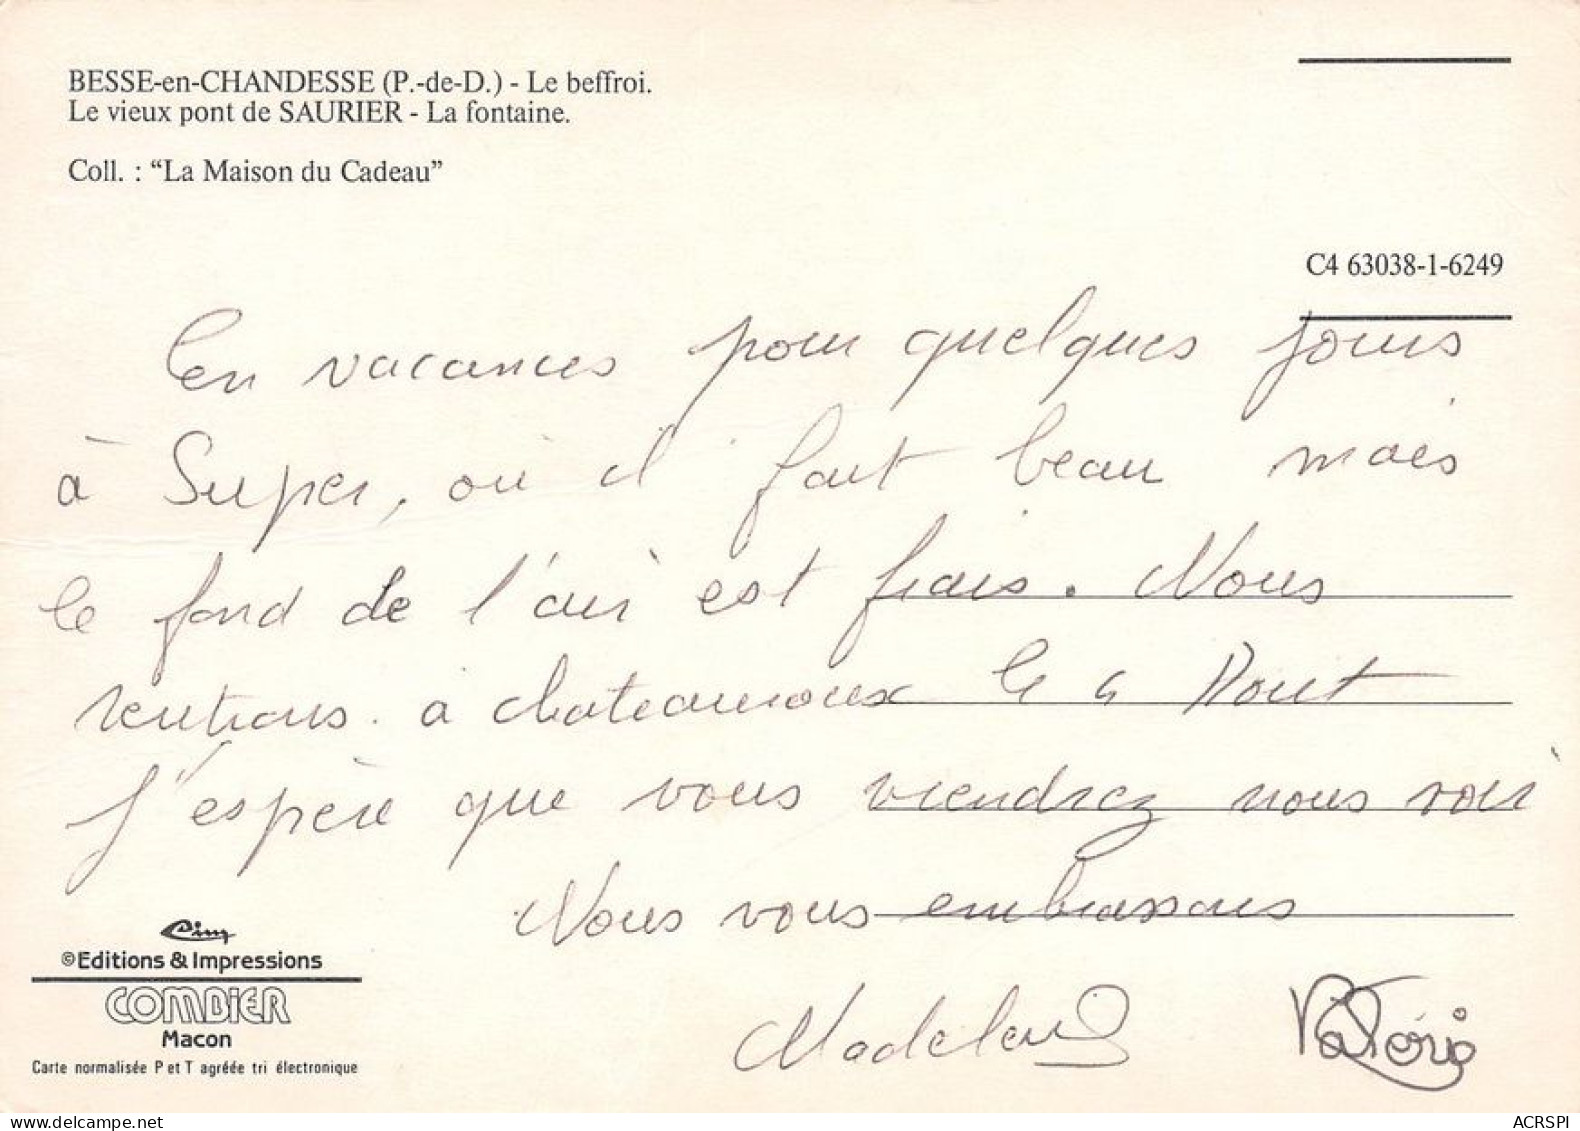 BESSE-en-CHANDESSE (P.-de-D.) - Le beffroi.
Le vieux pont de SAURIER - La fontaine.
Coll. : “La Maison du Cadeau”
C4 63038-1-6249
En vacances pour quelques jours
à Super, où il fait beau mais
le fond de l'air est frais. Nous
rentrons à chateauroux le 4 Aout
J'espère que vous viendrez nous voir
Nous vous embrassons
Madeleine Valérie
Cim
©Editions & Impressions
COMBIER
Macon
Carte normalisée P et T agréée tri électronique
ACRSPI